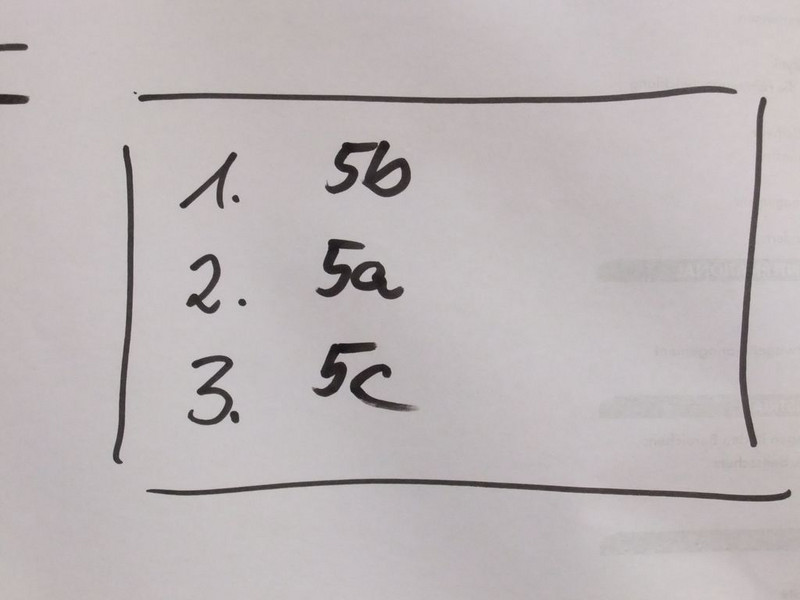 1. 5b
2. 5a
3. 5c